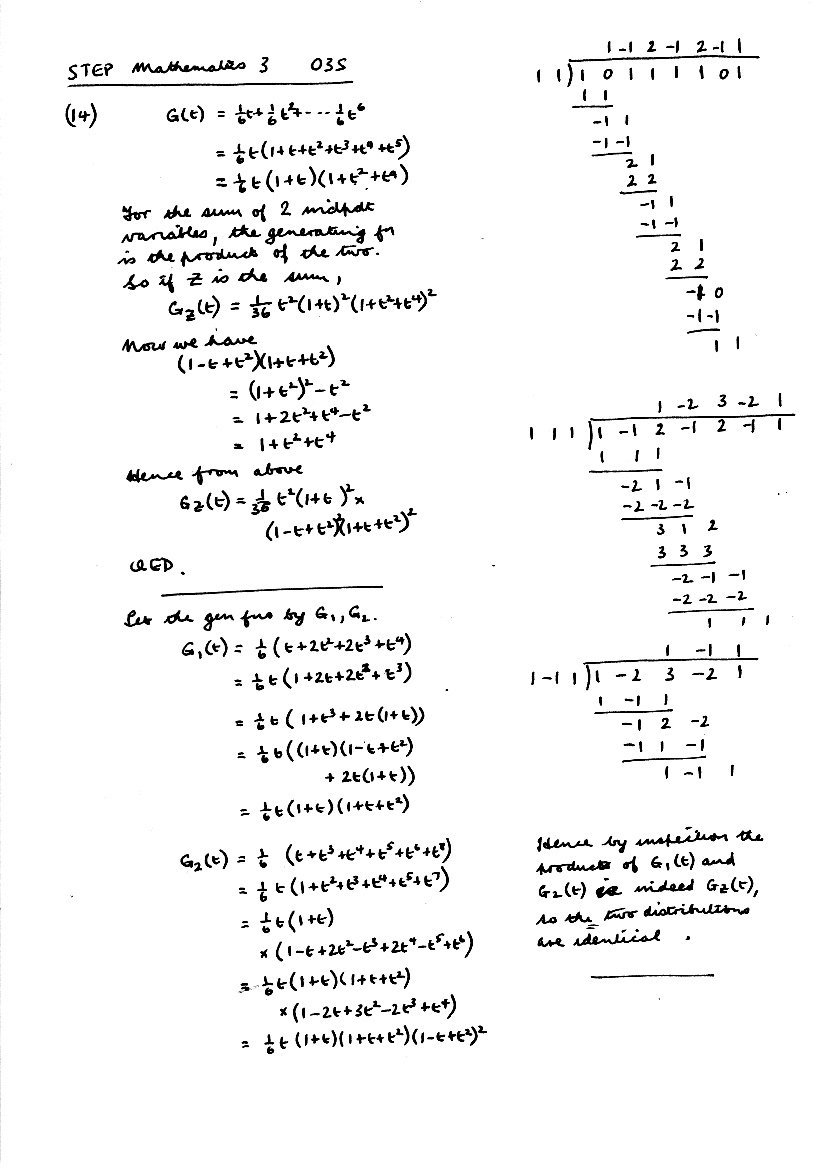 STEP Mathematics 3 03S
(14) G(t) = 1/6 t + 1/6 t² + --- 1/6 t⁶
= 1/6 t (1+t+t²+t³+t⁴+t⁵)
= 1/6 t (1+t)(1+t²+t⁴)
For the sum of 2 indpdt
variables, the generating fn
is the product of the two.
So if Z is the sum,
G_Z(t) = 1/36 t²(1+t)²(1+t²+t⁴)²
Now we have
(1-t+t²)(1+t+t²)
= (1+t²)² - t²
= 1+2t²+t⁴-t²
= 1+t²+t⁴
Hence from above
G_Z(t) = 1/36 t²(1+t)² ×
(1-t+t²)²(1+t+t²)²
QED.
Let the gen fns by G₁, G₂.
G₁(t) = 1/6 (t+2t²+2t³+t⁴)
= 1/6 t (1+2t+2t²+t³)
= 1/6 t (1+t³+2t(1+t))
= 1/6 t ((1+t)(1-t+t²)
+ 2t(1+t))
= 1/6 t (1+t)(1+t+t²)
G₂(t) = 1/6 (t+t³+t⁴+t⁵+t⁶+t⁸)
= 1/6 t (1+t²+t³+t⁴+t⁵+t⁷)
= 1/6 t (1+t)
× (1-t+2t²-t³+2t⁴-t⁵+t⁶)
= 1/6 t (1+t)(1+t+t²)
× (1-2t+3t²-2t³+t⁴)
= 1/6 t (1+t)(1+t+t²)(1-t+t²)²
1 -1 2 -1 2 -1 1
1 1 ) 1 0 1 1 1 1 0 1
1 1
-1 1
-1 -1
2 1
2 2
-1 1
-1 -1
2 1
2 2
-1 0
-1 -1
1 1
1 -2 3 -2 1
1 1 1 ) 1 -1 2 -1 2 -1 1
1 1 1
-2 1 -1
-2 -2 -2
3 1 2
3 3 3
-2 -1 -1
-2 -2 -2
1 1 1
1 -1 1
1 -1 1 ) 1 -2 3 -2 1
1 -1 1
-1 2 -2
-1 1 -1
1 -1 1
Hence by inspection the
product of G₁(t) and
G₂(t) is indeed G_Z(t),
so the two distributions
are identical.